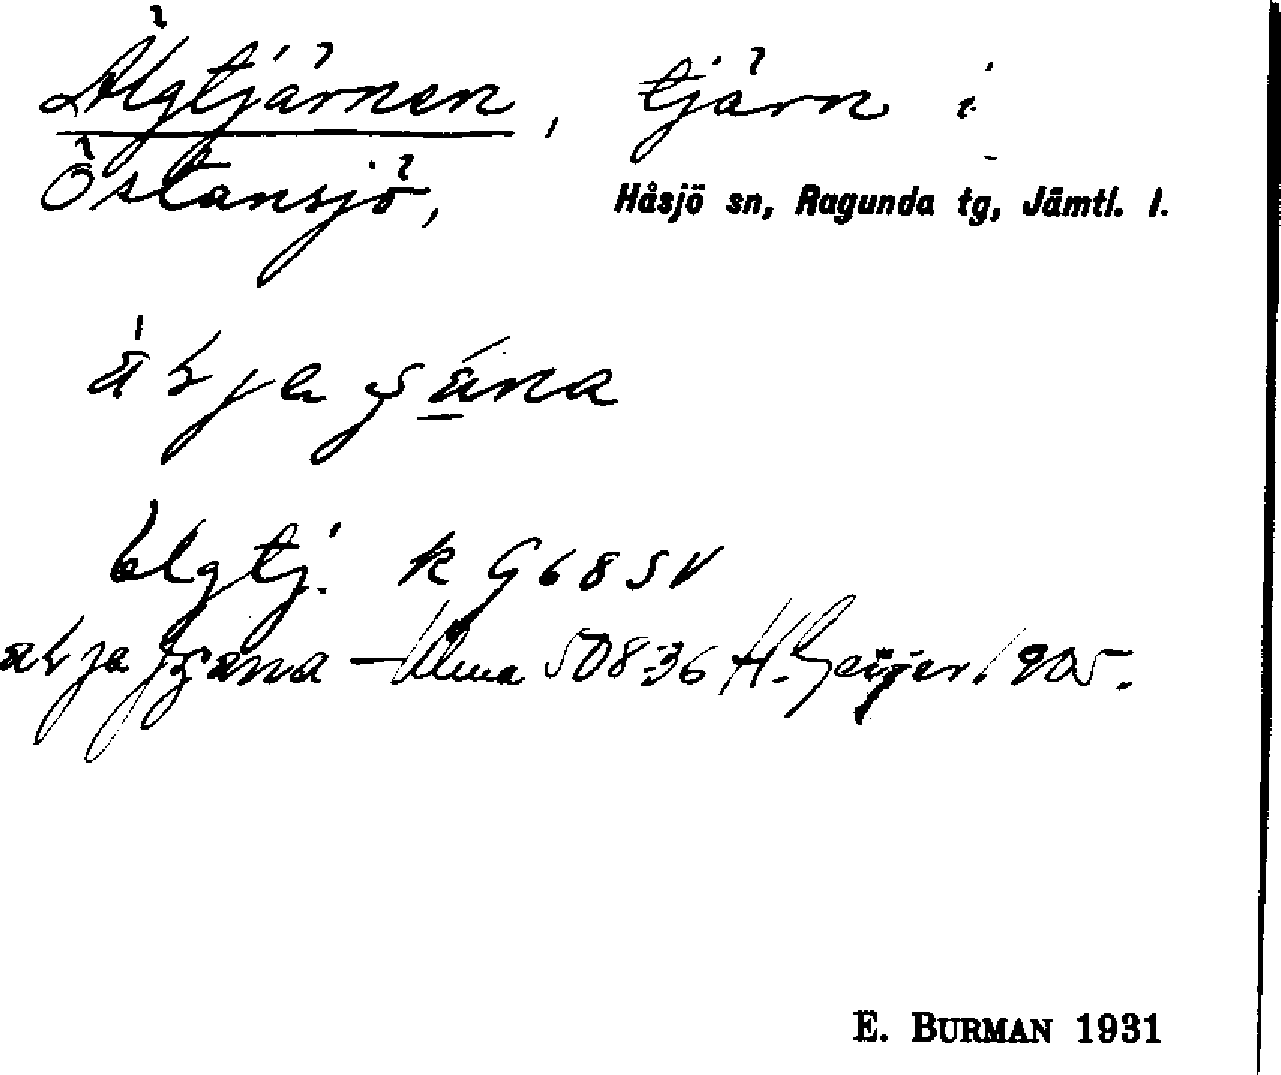 Älgtjärnen, tjärn i
Östansjö, Håsjö sn, Ragunda tg, Jämtl. l.
Elgtj. k G 68 SV
Ulma 508:36 H. Geijer 1905.
E. BURMAN 1931